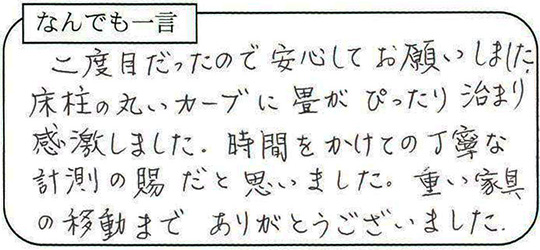 なんでも一言
二度目だったので安心してお願いしました。
床柱の丸いカーブに畳がぴったり治まり
感激しました. 時間をかけての丁寧な
計測の賜だと思いました。重い家具
の移動までありがとうございました.